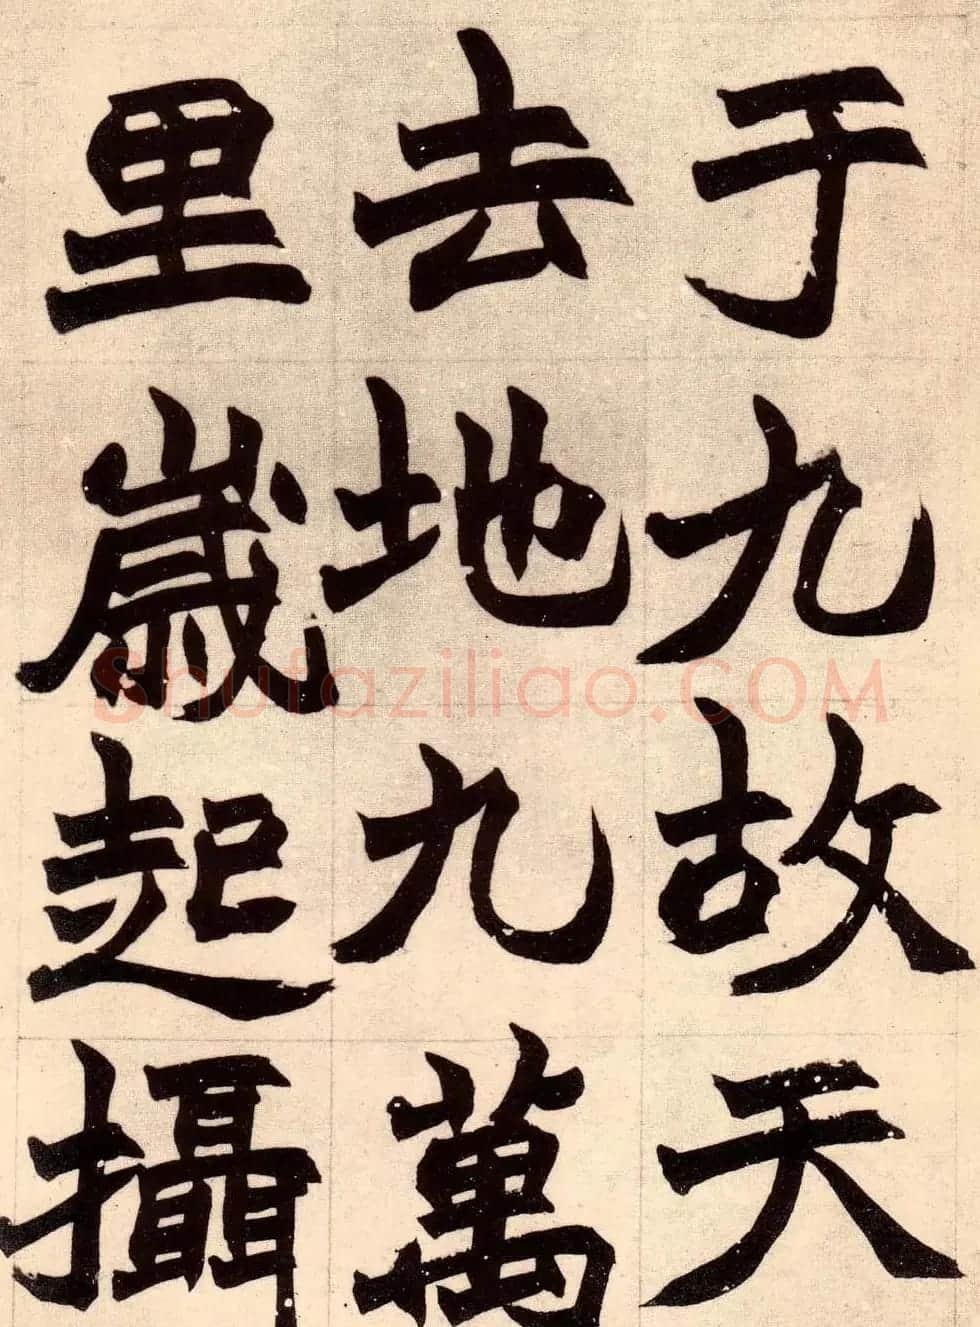 于九故天
去地九萬
里歳起攝
Shufaziliao.COM